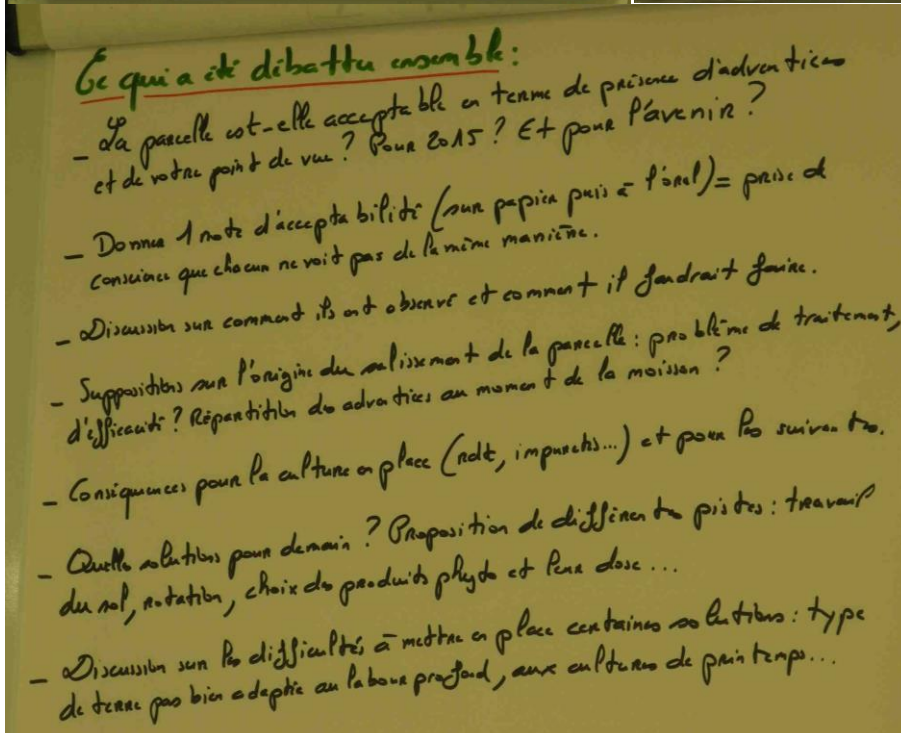 Ce qui a été débattu ensemble :
- La parcelle est-elle acceptable en terme de présence d'adventices
et de votre point de vue ? Pour 2015 ? Et pour l'avenir ?
- Donner 1 note d'acceptabilité (sur papier puis à l'oral) = prise de
conscience que chacun ne voit pas de la même manière.
- Discussion sur comment ils ont observé et comment il faudrait faire.
- Suppositions sur l'origine du salissement de la parcelle : problème de traitement,
d'efficacité ? Répartition des adventices au moment de la moisson ?
- Conséquences pour la culture en place (rdt, impuretés...) et pour les suivantes.
- Quelles solutions pour demain ? Proposition de différentes pistes : travail
du sol, rotation, choix des produits phyto et leur dose ...
- Discussion sur les difficultés à mettre en place certaines solutions : type
de terre pas bien adaptée au labour profond, aux cultures de printemps...